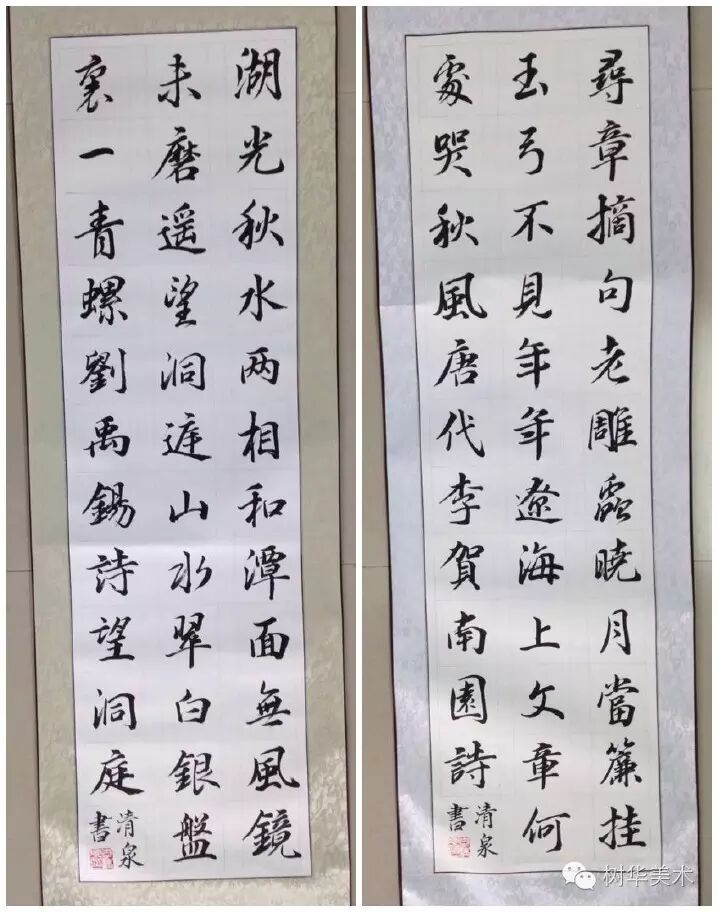 湖光秋水两相和潭面無風鏡
未磨遥望洞庭山水翠白銀盤
裏一青螺劉禹錫詩望洞庭
清泉
書
尋章摘句老雕蟲曉月當簾挂
玉弓不見年年遼海上文章何
處哭秋風唐代李賀南園詩
清泉
書
树华美术